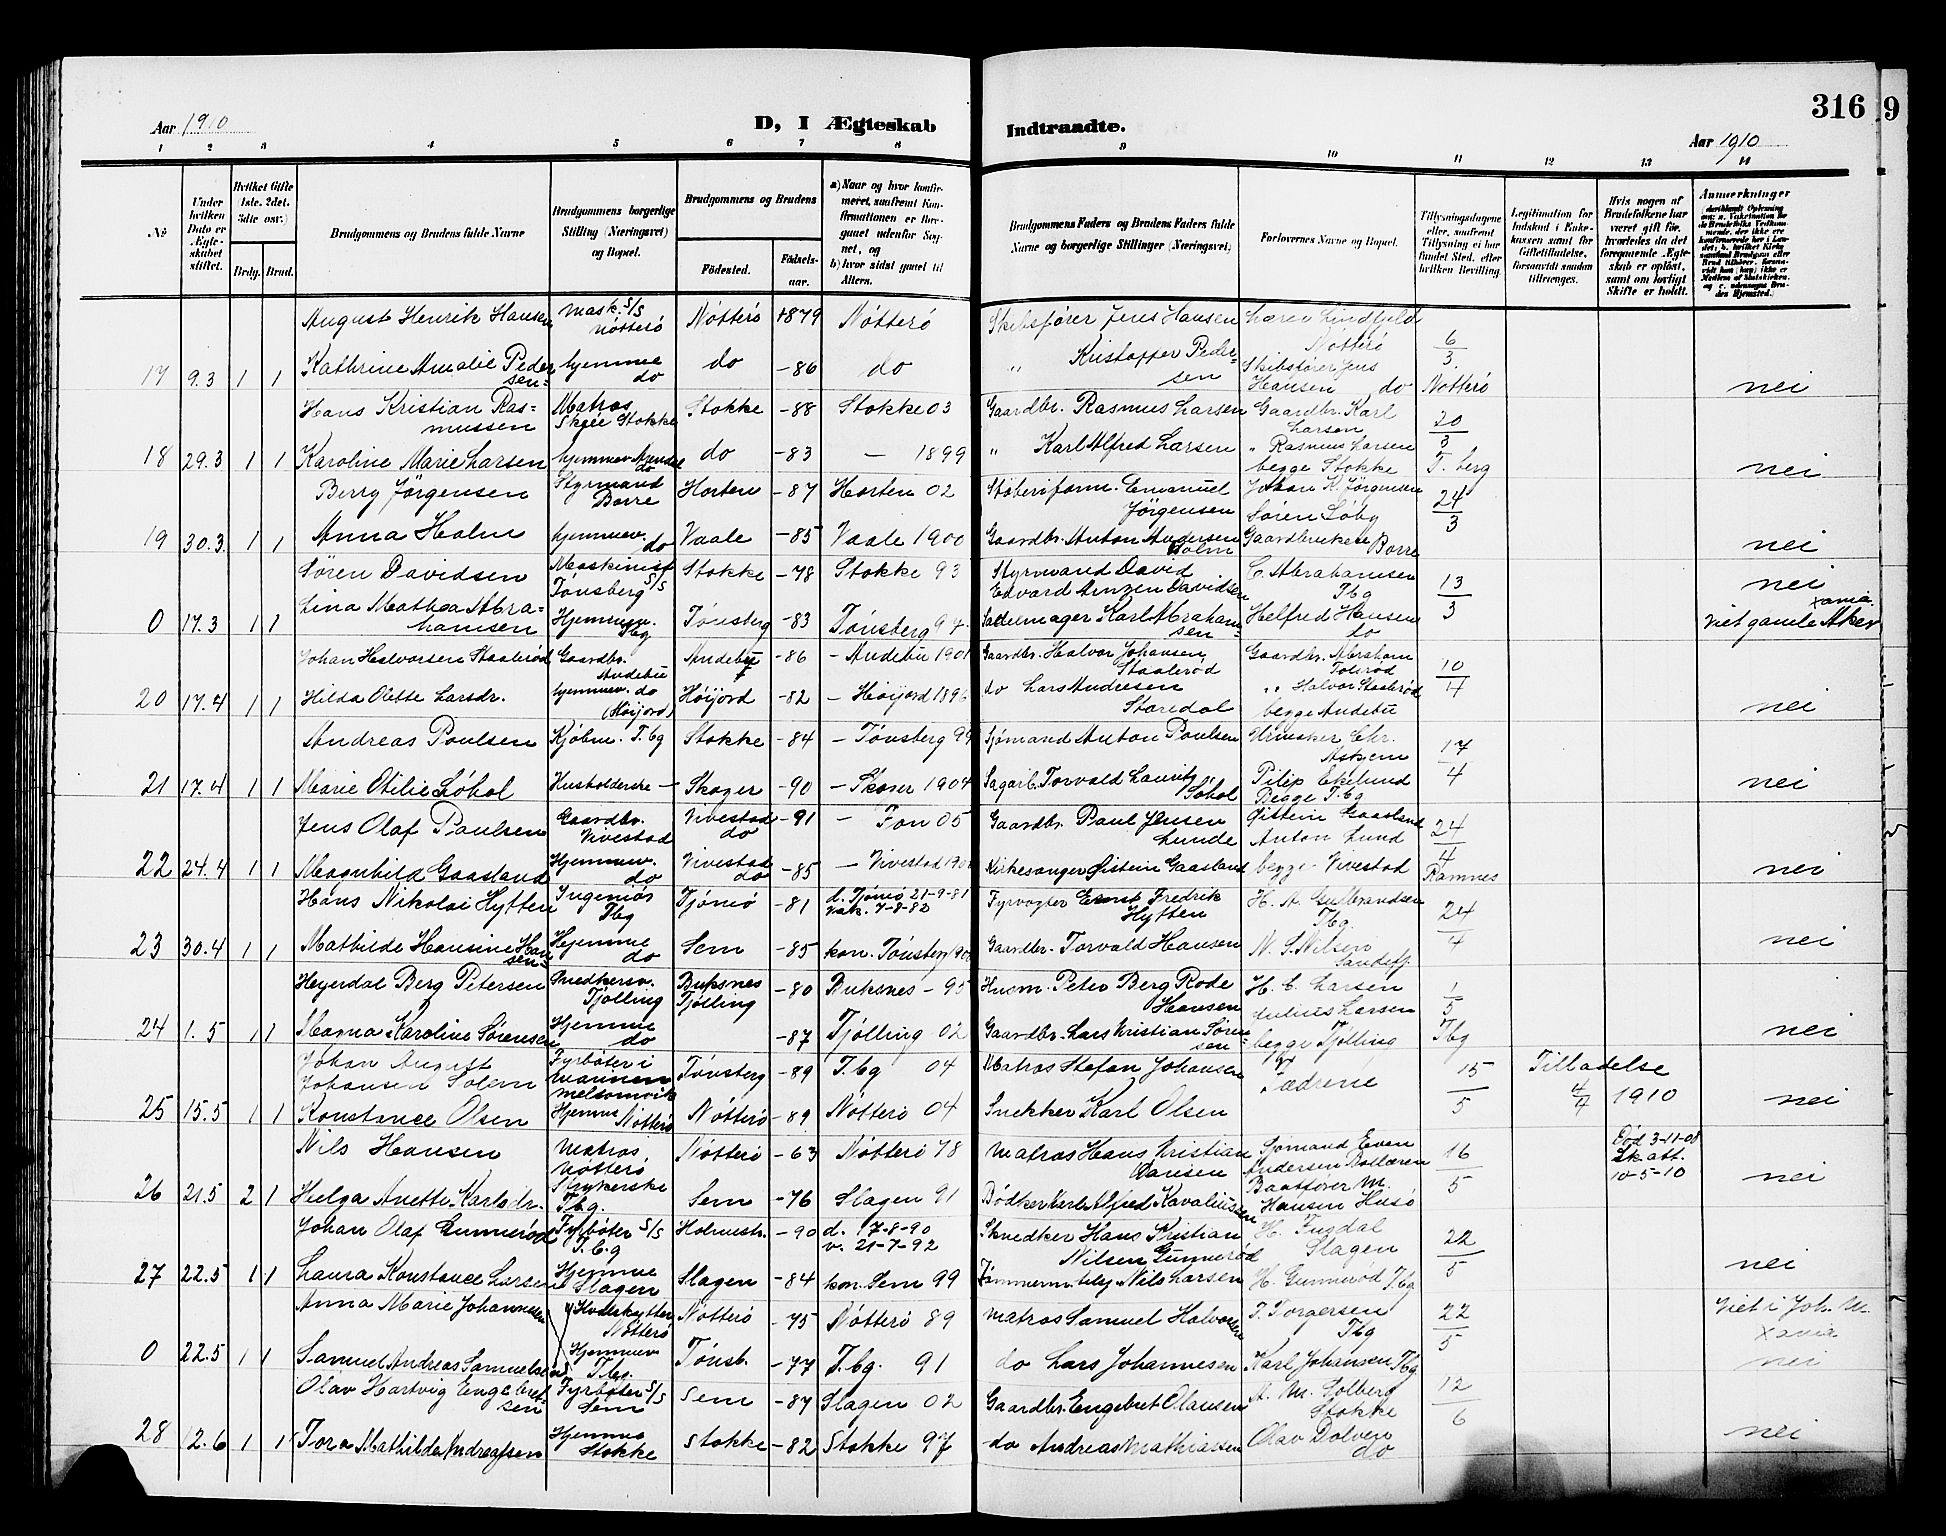 Aar 1910
D, I Ægteskab Indtraadte.
316
9
Aar 1910
1 2 3 4 5 6 7 8 9 10 11 12 13 14
No
Under hvilken Dato er Ægteskabet stiftet.
Hvilket Gifte 1ste. 2det. 3die osv.)
Brdg. Brud.
Brudgommens og Brudens fulde Navne
Brudgommens borgerlige Stilling (Næringsvei) og Bopæl.
Brudgommens og Brudens
Fødested.
Fødsels-aar.
a) Naar og hvor konfirmeret, saafremt Konfirmationen er foregaaet udenfor Sognet, og
b) hvor sidst gaaet til Alters.
Brudgommens Faders og Brudens Faders fulde Navne og borgerlige Stillinger (Næringsvei)
Forlovernes Navne og Bopæl.
Tillysningsdagene eller, saafremt Tillysning ei har fundet Sted, efter hvilken Bevilling.
Legitimation for Indskud i Enkekassen samt for Giftetilladelse, forsaavidt saadan tiltrænges.
Hvis nogen af Brudefolkene har været gift før, hvorledes da det foregaaende Ægteskab er opløst, samt om lovligt Skifte er holdt.
Anmærkninger
August Henrik Hansen mask. S/S Nötterö Nötterö 1879 Nötterö Skibsfører Jens Hansen Lars Lindfjeld Nötterö 6/3
17 9.3 1 1 Kathrine Amalie Pedersen hjemme do do -86 do " Kristoffer Pedersen Skibsfører Jens Hansen do Nötterö nei
Hans Kristian Rasmussen Matros Skjee Stokke Stokke -88 Stokke 03 Gaardbr. Rasmus Larsen Gaardbr. Karl Larsen 20/3
18 29.3 1 1 Karoline Marie Larsen hjemmev. do do -83 – 1899 " Karl Alfred Larsen " Rasmus Larsen begge Stokke T.berg nei
Berry Jörgensen Styrmand Borre Horten -87 Horten 02 Støberiform. Emanuel Jörgensen Johan K. Jörgensen 24/3
19 30.3 1 1 Anna Holm hjemmev. do Vaale -85 Vaale 1900 Gaardbr. Anton Andersen Holm Søren Løby Gaardbrukere Borre nei
Sören Davidsen Maskinist S/S Tönsberg Stokke -78 Stokke 93 Styrmand David Edvard Arnzen Davidsen C. Abrahamsen Tbg 13/3 nei
0 17.3 1 1 Lina Mathea Abrahamsen Hjemmev. Tbg Tönsberg -83 Tönsberg 97 Sadelmager Karl Abrahamsen Helfred Hansen do viet gamle Aker xania
Johan Halvorsen Staalerød Gaardbr. Andebu Andebu -86 – Andebu 1901 Gaardbr. Halvor Johansen Staalerød Gaardbr. Abraham Tolsrød 10/4
20 17.4 1 1 Hilda Olette Larsdr. hjemmev. do (Höijord) Höijord -82 – Höijord 1896 do Lars Andresen Staredal " Halvor Staalerød begge Andebu nei
Andreas Poulsen Kjöbm. T.bg Stokke -84 – Tönsberg 99 Sjömand Anton Poulsen Urmaker Chr. Askem 17/4
21 17.4 1 1 Marie Otilie Söhol Husholderske – Skoger -90 – Skoger 1904 Sagarb. Torvald Lauritz Söhol Filip Ekelund Begge T.bg nei
Jens Olaf Paulsen Gaardbr. Vivestad Vivestad do -91 – Fon 05 Gaardbr. Paul Jensen Lunde Øistein Gaasland 24/4
22 24.4 1 1 Magnhild Gaasland Hjemmev. do Vivestad do -85 – Vivestad 1900 Kirkesanger Øistein Gaasland Anton Lund begge – Vivestad Ramnes nei
Hans Nikolai Hytten Ingeniör Tbg Tjömö -81 d. Tjömö 21-9-81 vak. 7-8-82 Fyrvogter Ernst Fredrik Hytten H. A. Gulbrandsen Tbg. 24/4
23 30.4 1 1 Mathilde Hansine Hansen Hjemme do Sem -85 kon. Tönsberg 1900 Gaardbr. Torvald Hansen N. S. Nilsen Sandefj. nei
Heyerdal Berg Petersen Snedkersv. Tjölling Buksnes Tjölling -80 Buksnes – 95 Husm. Peter Berg Rode Hansen H. C. Larsen 1/5
24 1.5 1 1 Magna Karoline Sörensen Hjemme do -87 Tjölling 02 Gaardbr. Lars Kristian Sörensen Julius Larsen begge Tjölling Tbg nei
Johan August Johansen Solem Fyrböter i marinen melsomvik Tönsberg -89 T.bg 04 Matros Stefan Johansen Fædrene 15/5 Tilladelse 4/4 1910
25 15.5 1 1 Konstance Olsen Hjemme Nötterö Nötterö -89 Nötterö 04 Snekker Karl Olsen nei
Nils Hansen matros, Nötterö Nötterö -63 Nötterö 78 matros Hans Kristian Hansen Sjømand Even Andersen Bollæren 16/5 Død 3-11-08 Sk. att. 10-5-10
26 21.5 2 1 Helga Anette Karlsdr. Strykerske Tbg. Sem -76 Slagen 91 Bödker Karl Alfred Kavaliussen Baatfører M. Hansen Husö nei
Johan Olaf Gunneröd Fyrböter S/S T.b.g Holmestr. -90 d. 17-8-90 v. 21-7-92 Snedker Hans Kristian Nilsen Gunneröd H. Fugdal Slagen 22/5
27 22.5 1 1 Laura Konstance Larsen Hjemme Slagen Slagen -84 kon. Sem 99 Tömmerm. Nils Larsen H. Gunneröd Tbg nei
Anna Marie Johannesen Hvalskytter Nötterö Nötterö -75 Nötterö 89 matros Samuel Halvorsen T. Torgersen Tbg 22/5 Viet i Joh. M. xania
0 22.5 1 1 Samuel Andreas Samuelsen Hjemmev. T.bg. Tönsb. -77 T.bg. 91 do Lars Johannesen Karl Johansen Tbg. nei
Olav Hartvig Engebretsen Fyrböter S/S Sem Sem -87 Slagen 02 Gaardbr. Engebret Olausen A. M. Solberg Stokke 12/6
28 12.6 1 1 Tora Mathilde Andreassen Hjemme Stokke Stokke -82 Stokke 97 do Andreas Mathiassen Olav Dolven do nei